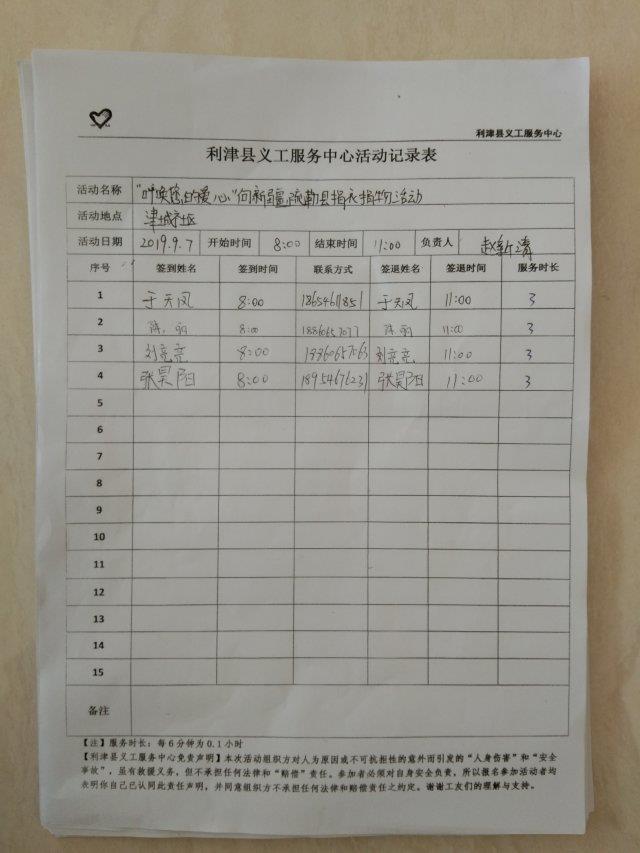 利津县义工服务中心
利津县义工服务中心活动记录表
活动名称 "呼唤您的爱心"向新疆疏勒县捐衣捐物活动
活动地点 津城社区
活动日期 2019.9.7 开始时间 8:00 结束时间 11:00 负责人 赵新清
序号 签到姓名 签到时间 联系方式 签退姓名 签退时间 服务时长
1 于天凤 8:00 18654611851 于天凤 11:00 3
2 陈丽 8:00 18860657077 陈丽 11:00 3
3 刘亮亮 8:00 刘亮亮 11:00 3
4 张昊阳 8:00 18954676231 张昊阳 11:00 3
5
6
7
8
9
10
11
12
13
14
15
备注
【注】服务时长：每6分钟为0.1小时
【利津县义工服务中心免责声明】本次活动组织方对人为原因或不可抗拒性的意外而引发的"人身伤害"和"安全
事故"，虽有救援义务，但不承担任何法律和"赔偿"责任。参加者必须对自身安全负责，所以报名参加活动者均
表明你自己已认同此责任声明，并同意组织方不承担任何法律和赔偿责任之约定。谢谢工友们的理解与支持。